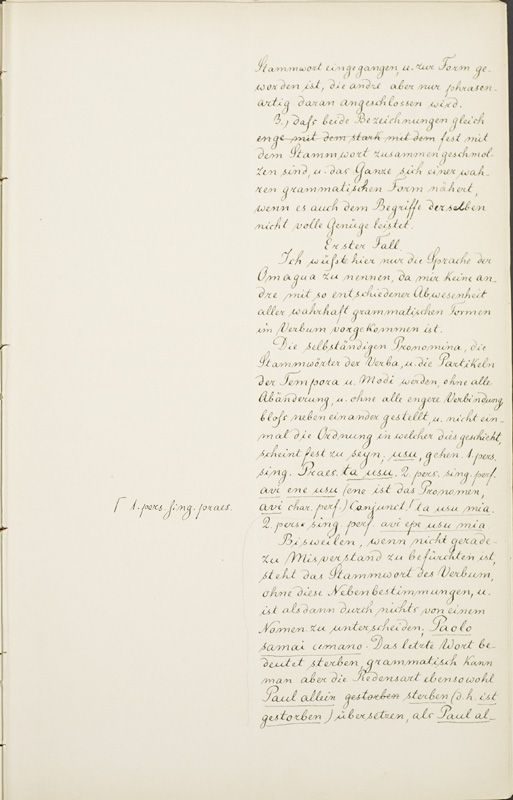 Stammwort eingegangen, u. zur Form ge-
worden ist, die andre aber nur phrasen-
artig daran angeschlossen wird.
3., daſs beide Bezeichnungen gleich
enge mit dem stark mit dem fest mit
dem Stammwort zusammengeschmol-
zen sind, u. das Ganze sich einer wah-
ren grammatischen Form nähert,
wenn es auch dem Begriffe derselben
nicht volle Genüge leistet.
Erster Fall.
Ich wüſste hier nur die Sprache der
Omagua zu nennen, da mir keine an-
dre mit so entschiedener Abwesenheit
aller wahrhaft grammatischen Formen
im Verbum vorgekommen ist.
Die selbständigen Pronomina, die
Stammwörter der Verba, u. die Partikeln
der Tempora u. Modi werden, ohne alle
Abänderung, u. ohne alle engere Verbindung
bloſs neben einander gestellt, u. nicht ein-
mal die Ordnung in welcher dies geschieht,
scheint fest zu seyn, usu, gehen. 1. pers.
sing. Praes. ta usu. 2 pers. sing. perf.
avi ene usu (ene ist das Pronomen,
avi char. perf.) Conjunct. ⌈ ta usu mia.
⌈ 1. pers. sing. praes.
2 pers. sing. perf. avi epe usu mia
Bisweilen, wenn nicht gerade-
zu Misverstand zu befürchten ist,
steht das Stammwort des Verbum,
ohne diese Nebenbestimmungen, u.
ist alsdann durch nichts von einem
Nomen zu unterscheiden, Paolo
samai umano. Das letzte Wort be-
deutet sterben, grammatisch kann
man aber die Redensart ebensowohl
Paul allein gestorben sterben (d. h. ist
gestorben) übersetzen, als Paul al-